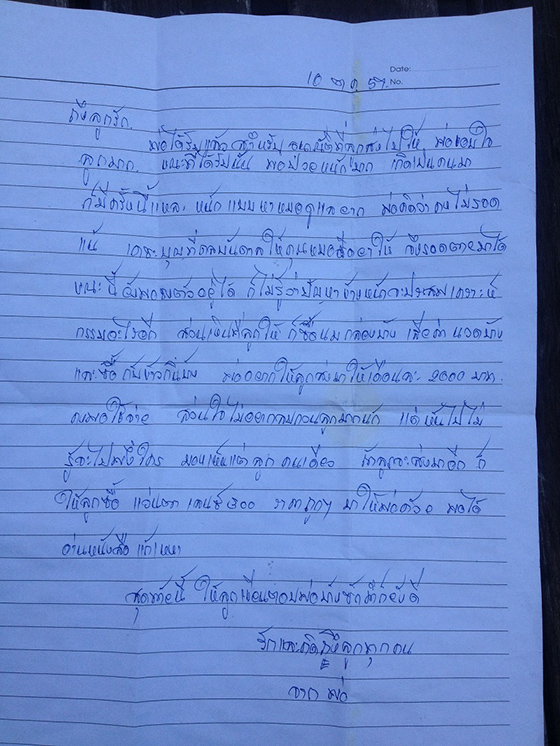 Date:
10 ต.ค. 57 No.
ถึงลูกรัก
พ่อได้รับแล้ว สำหรับ ที่ลูกส่งไปให้ พ่อขอบใจ
ลูกมาก ขณะที่ได้รับนั้น พ่อป่วยหนักมาก เกิดมา
ก็มีครั้งนี้แหละ หนัก หาหมอ พ่อคิดว่าคงไม่รอด
แน่ บุญที่ ให้คุณหมอ ให้ ถึงรอดตายมาได้
ขณะนี้ อยู่ได้ ก็ไม่รู้ว่าปัญหาข้างหน้าจะประสพเคราะห์
กรรมอะไรอีก ส่วนเงินที่ลูกให้ ก็ซื้อนมกล่องบ้าง เสื้อผ้า บ้าง
และซื้อกับข้าวกินบ้าง พ่ออยากให้ลูกส่งมาให้เดือนละ 2000 บาท
พ่อใช้จ่าย ส่วนใจไม่อยากรบกวนลูกมากนัก แต่ ไม่
รู้จะไปพึ่งใคร มองเห็นแต่ลูก คนเดียว ถ้าลูกจะส่งมาอีก ก็
ให้ลูกซื้อ แว่นตา เลนส์ 300 ราคาถูกๆ มาให้พ่อด้วย พ่อได้
อ่านหนังสือ แก้เหงา
สุดท้ายนี้ ให้ลูกเขียนตอบพ่อบ้างซัก ยังดี
รักและคิดถึงลูกทุกคน
จาก พ่อ